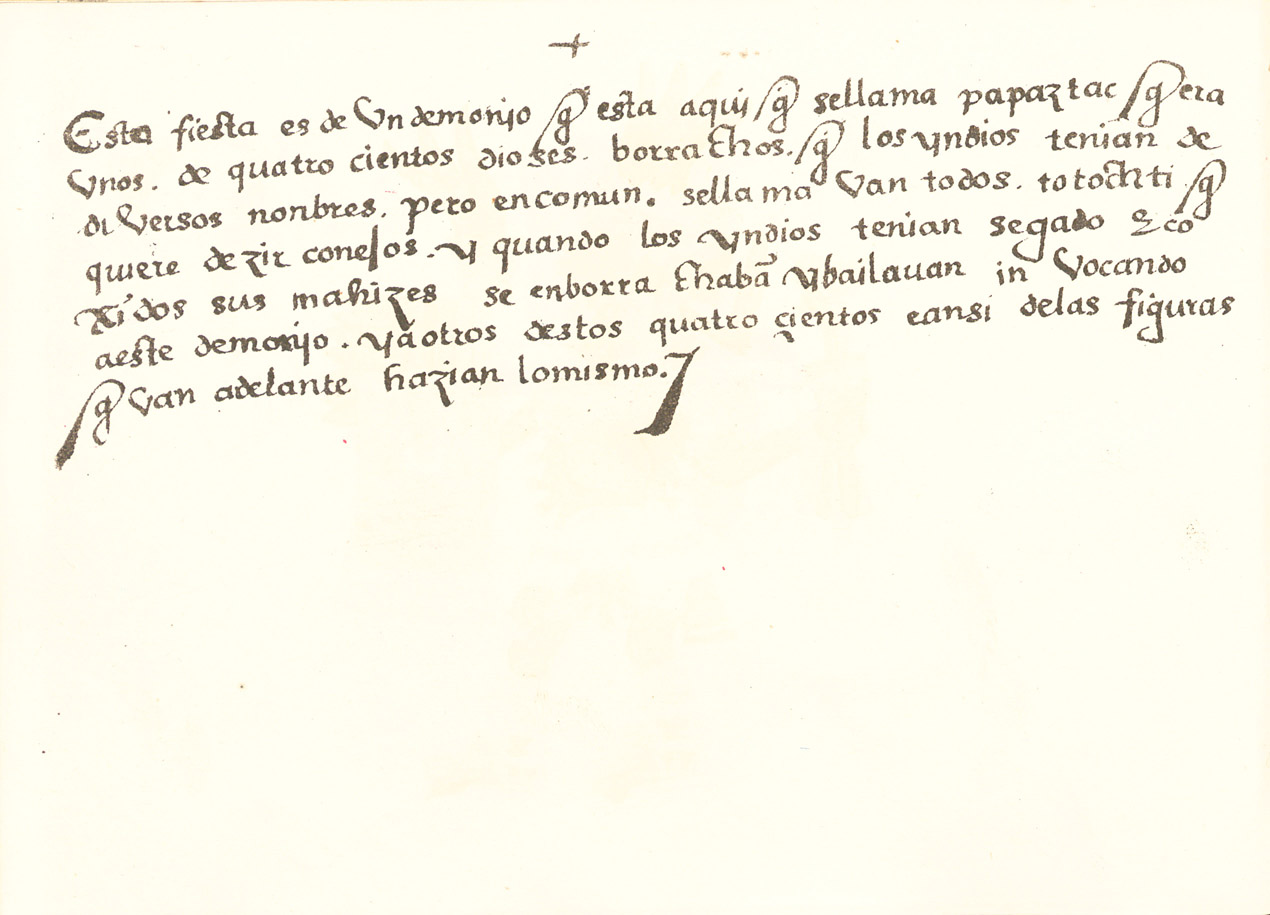 +
Esta fiesta es de Vn demonyo q̃ esta aquj q̃ sellama papaztac q̃ era
Vnos. de quatro cientos dioses. borrachos. q̃ los yndios tenian de
diVersos nonbres. pero encomun. sellamaVan todos. totochti q̃
quiere dezir conejos. y quando los yndios tenian segado & co
xi'dos sus mahizes se enborrachabã ybailauan inVocando
aeste demonyo. yã otros destos quatro çientos eansi delas figuras
q̃ Van adelante hazian lomismo.